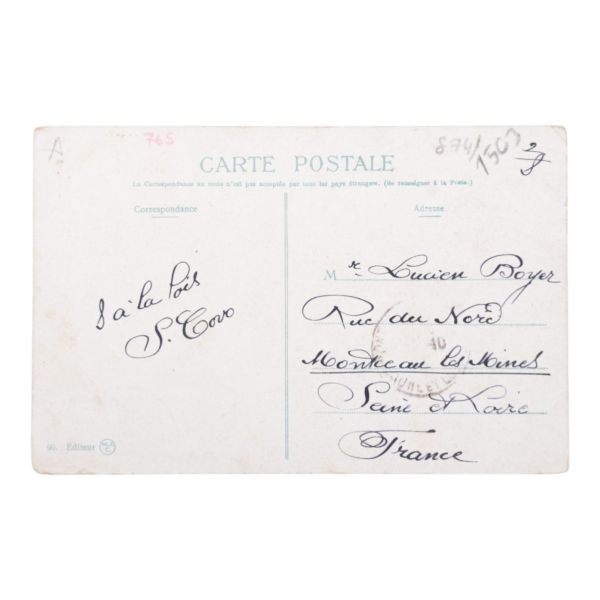 A
765
874/1503
2/8
CARTE POSTALE
La Correspondance au recto n'est pas acceptée par tous les pays étrangers. (Se renseigner à la Poste.)
Correspondance
Adresse
8 à la fois
S. Covo
Mr Lucien Boyer
Rue du Nord
Montceau les Mines
Seine et Loire
France
90. Editeur